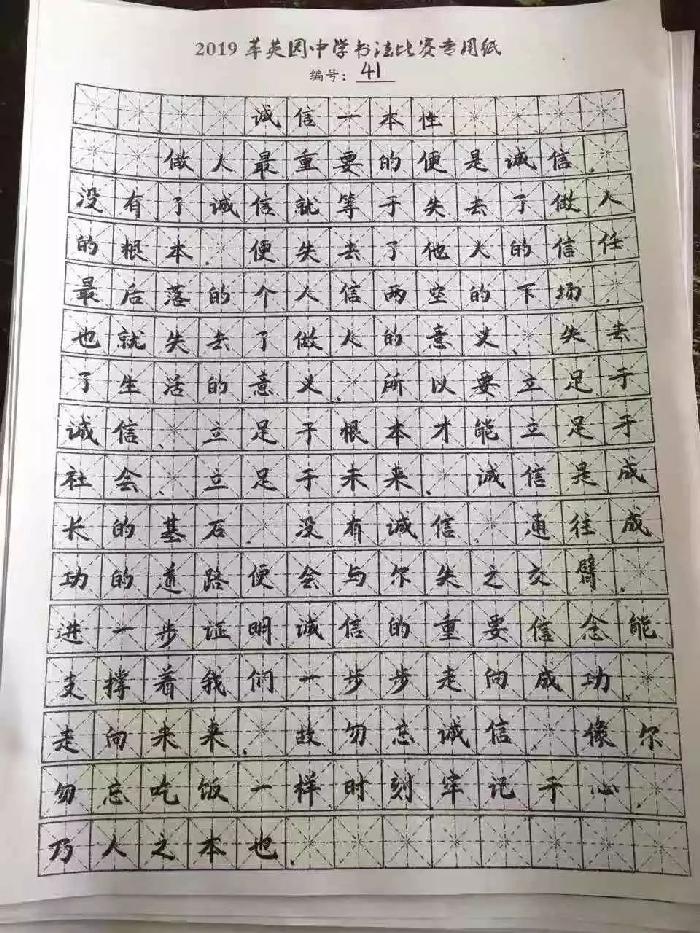 2019 革英园中学书法比赛专用纸
编号：41
诚信一本性
做人最重要的便是诚信.
没有了诚信就等于失去了做人
的根本.便失去了他人的信任
最后落的个人信两空的下场.
也就失去了做人的意义.失去
了生活的意义.所以要立足于
诚信.立足于根本才能立足于
社会.立足于未来.诚信是成
长的基石.没有诚信.通往成
功的道路便会与尔失之交臂.
进一步证明诚信的重要信念能
支撑着我们一步步走向成功.
走向未来.故勿忘诚信.像尔
勿忘吃饭一样时刻牢记于心.
乃人之本也.